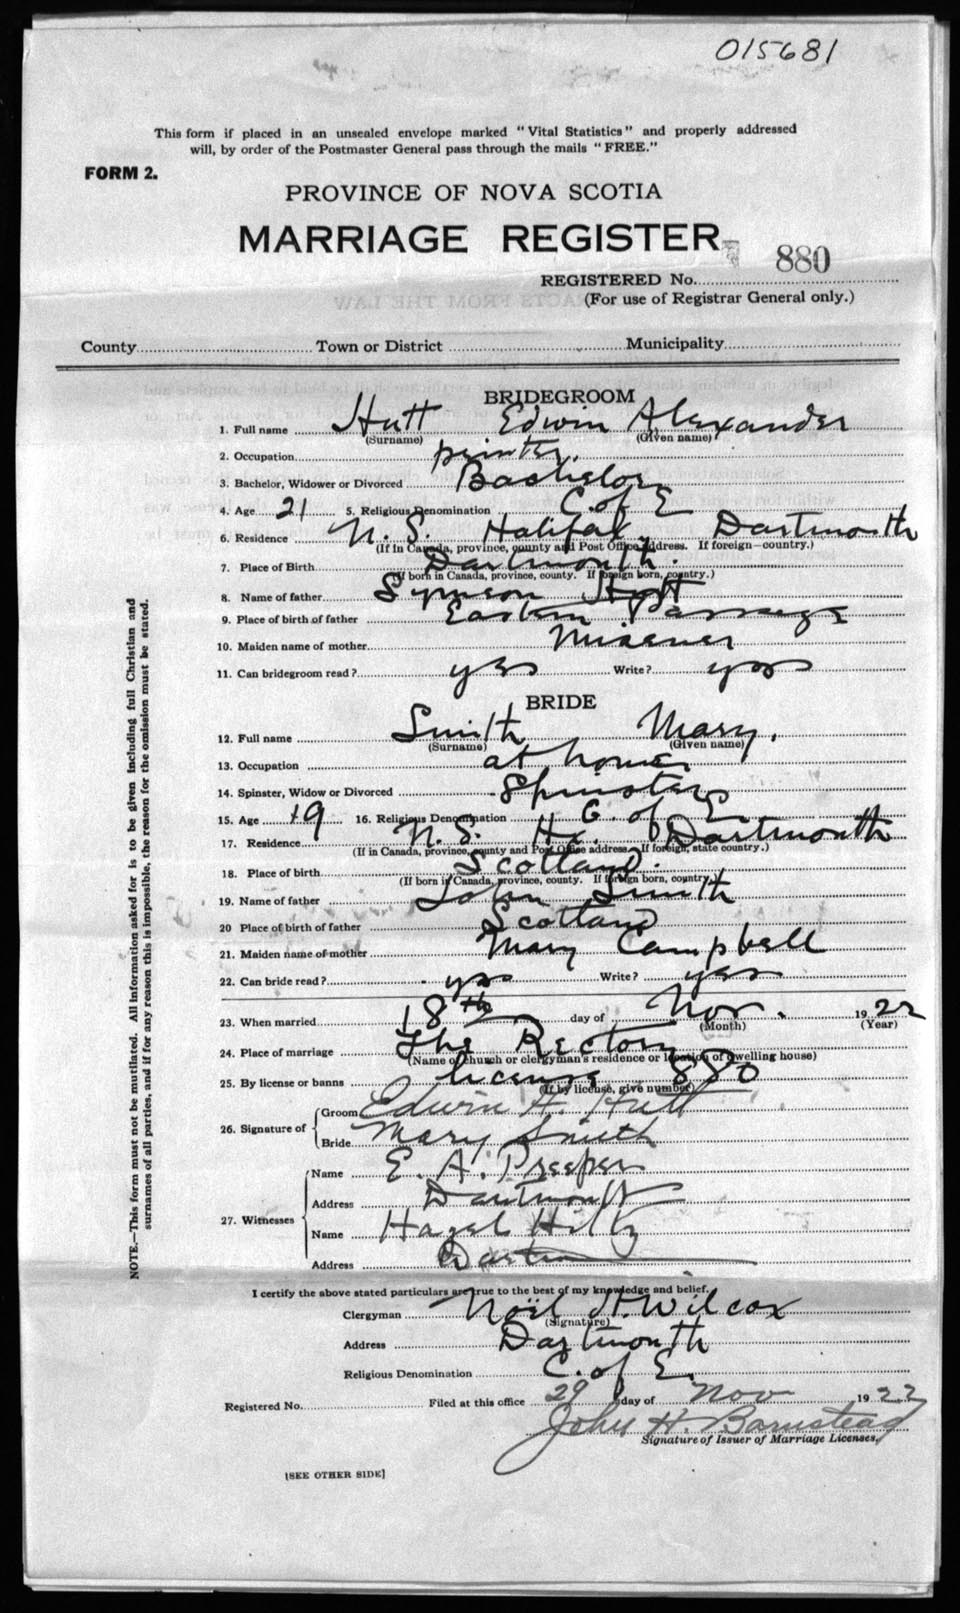 015681
This form if placed in an unsealed envelope marked "Vital Statistics" and properly addressed
will, by order of the Postmaster General pass through the mails "FREE."
FORM 2.
PROVINCE OF NOVA SCOTIA
MARRIAGE REGISTER
880
REGISTERED No.
(For use of Registrar General only.)
County Town or District Municipality
BRIDEGROOM
1. Full name Hutt Edwin Alexander
(Surname) (Given name)
2. Occupation printer.
3. Bachelor, Widower or Divorced Bachelor
4. Age 21 5. Religious Denomination C. of E
6. Residence N. S. Halifax Dartmouth
(If in Canada, province, county and Post Office address. If foreign—country.)
7. Place of Birth Dartmouth.
(If born in Canada, province, county. If foreign born, country.)
8. Name of father Hutt
9. Place of birth of father Eastern Passage
10. Maiden name of mother Misener
11. Can bridegroom read? yes Write? yes
BRIDE
12. Full name Smith Mary.
(Surname) (Given name)
13. Occupation at home
14. Spinster, Widow or Divorced Spinster
15. Age 19 16. Religious Denomination C. of E.
17. Residence N. S. Hx. Dartmouth
(If in Canada, province, county and Post Office address. If foreign, state country.)
18. Place of birth Scotland.
(If born in Canada, province, county. If foreign born, country.)
19. Name of father John Smith
20 Place of birth of father Scotland
21. Maiden name of mother Mary Campbell
22. Can bride read? yes Write? yes
23. When married 18th day of Nov. 1922
(Month) (Year)
24. Place of marriage The Rectory
(Name of church or clergyman's residence or location of dwelling house)
25. By license or banns license 880
(If by license, give number)
26. Signature of Groom Edwin A. Hutt
Bride Mary Smith
27. Witnesses Name E. A. Preeper
Address Dartmouth
Name Hazel Hiltz
Address
I certify the above stated particulars are true to the best of my knowledge and belief.
Clergyman Noël H. Wilcox
(Signature)
Address Dartmouth
Religious Denomination C. of E.
Registered No. Filed at this office 29 day of Nov 1922
John H. Barnstead
Signature of Issuer of Marriage Licenses.
[SEE OTHER SIDE]
NOTE.—This form must not be mutilated. All information asked for is to be given including full Christian and
surnames of all parties, and if for any reason this is impossible, the reason for the omission must be stated.